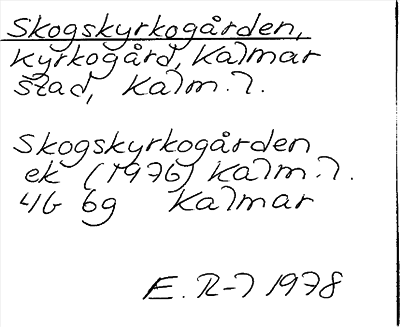 Skogskyrkogården,
Kyrkogård, Kalmar
stad, Kalm. l.
Skogskyrkogården
ek (1976) Kalm. l.
4G 6g Kalmar
E. R-l 1978